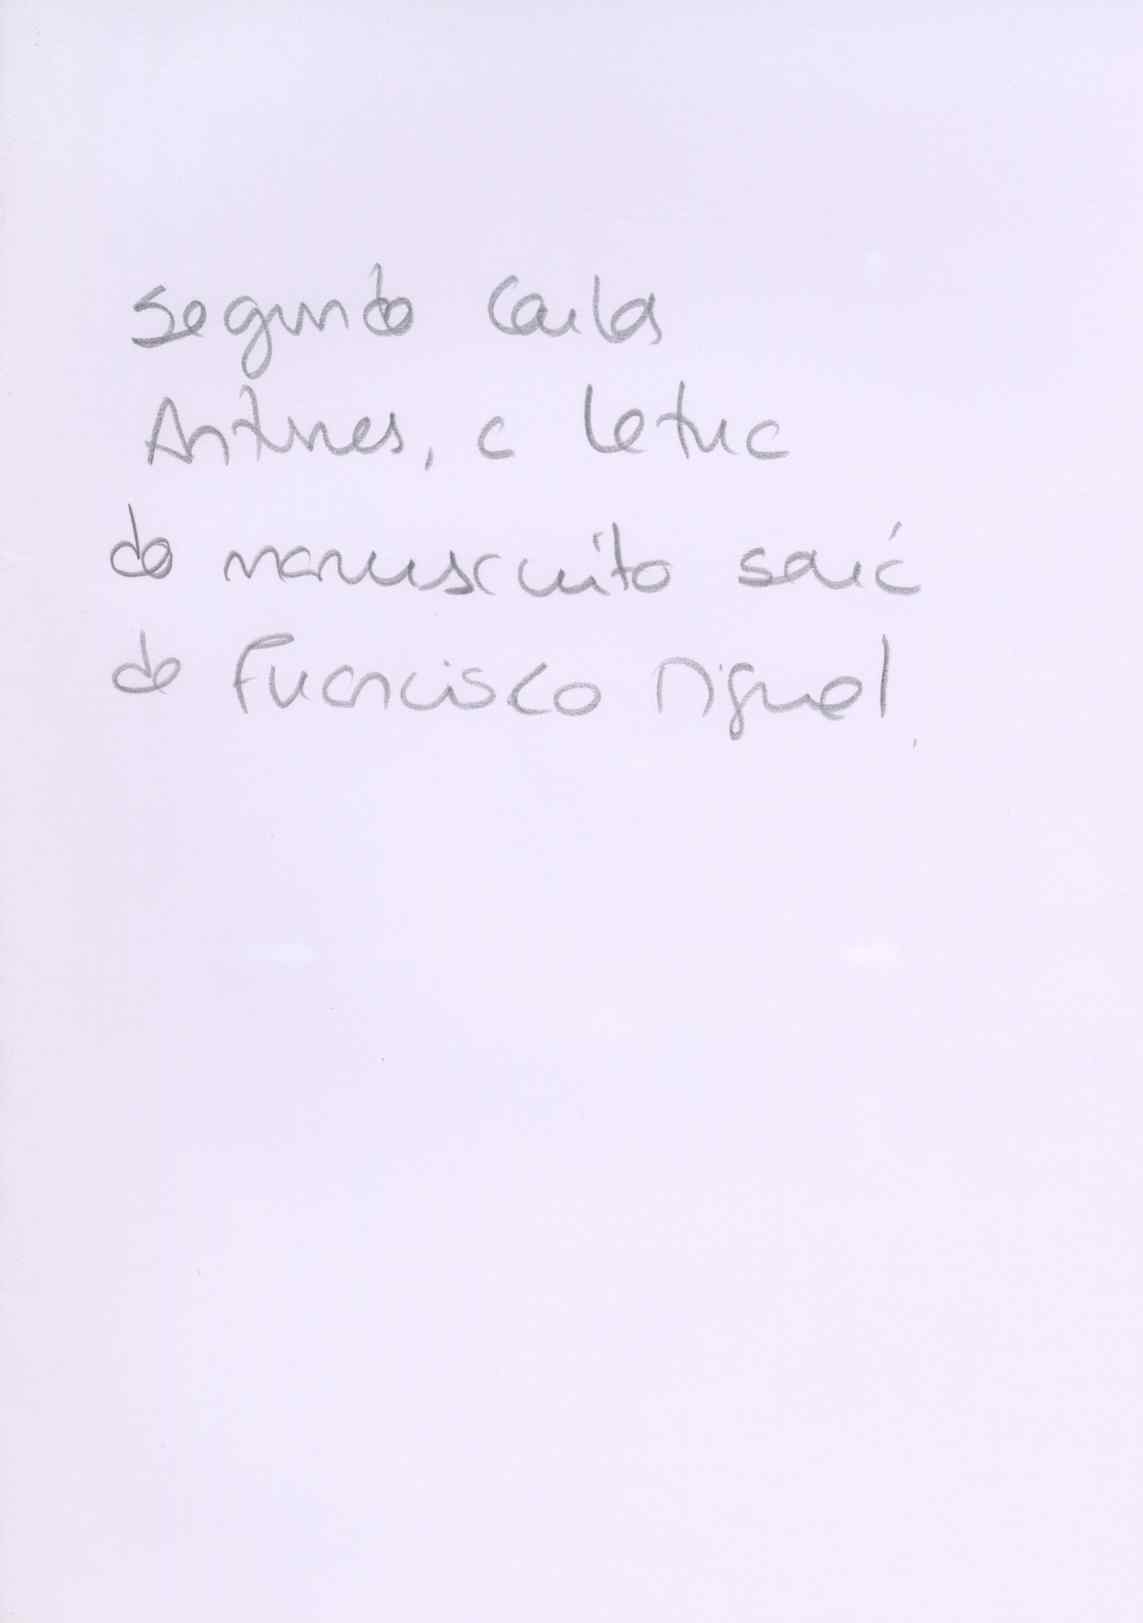 Segundo Carlos
Antunes, a letra
do manuscrito será
do Francisco Miguel.